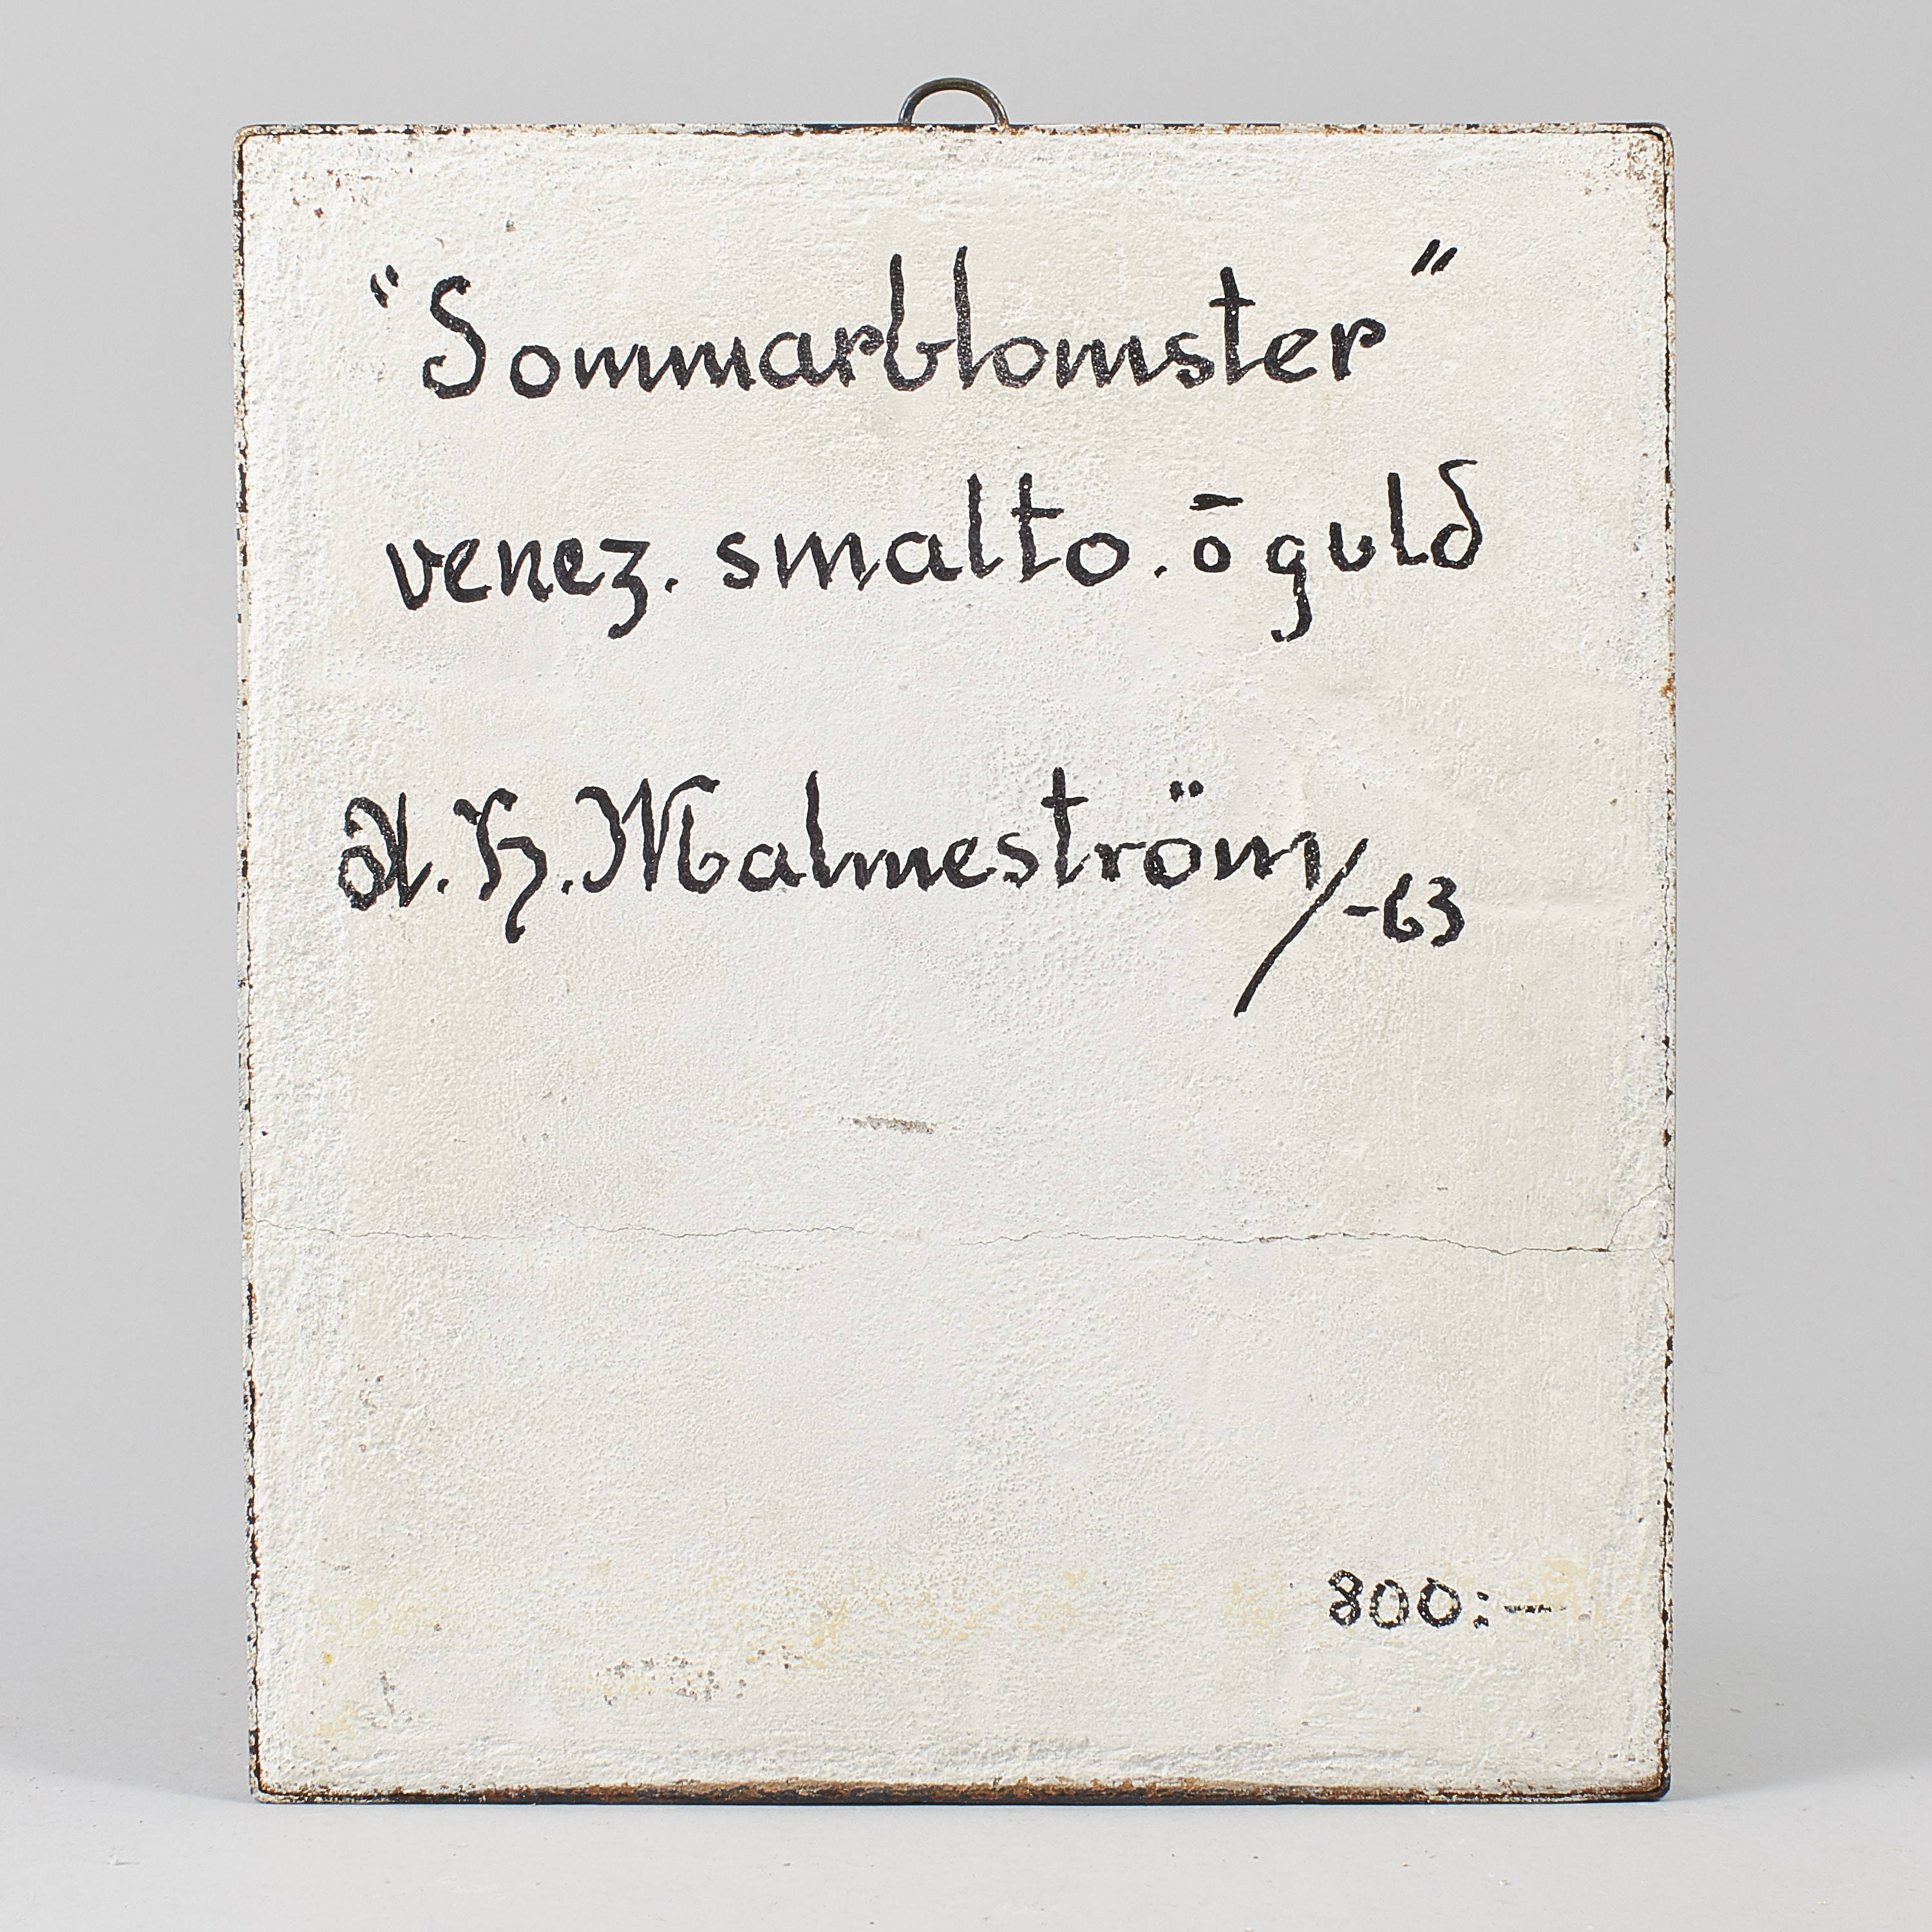 "Sommarblomster"
venez. smalto. ō guld
A. H. Malmeström/-63
800:-